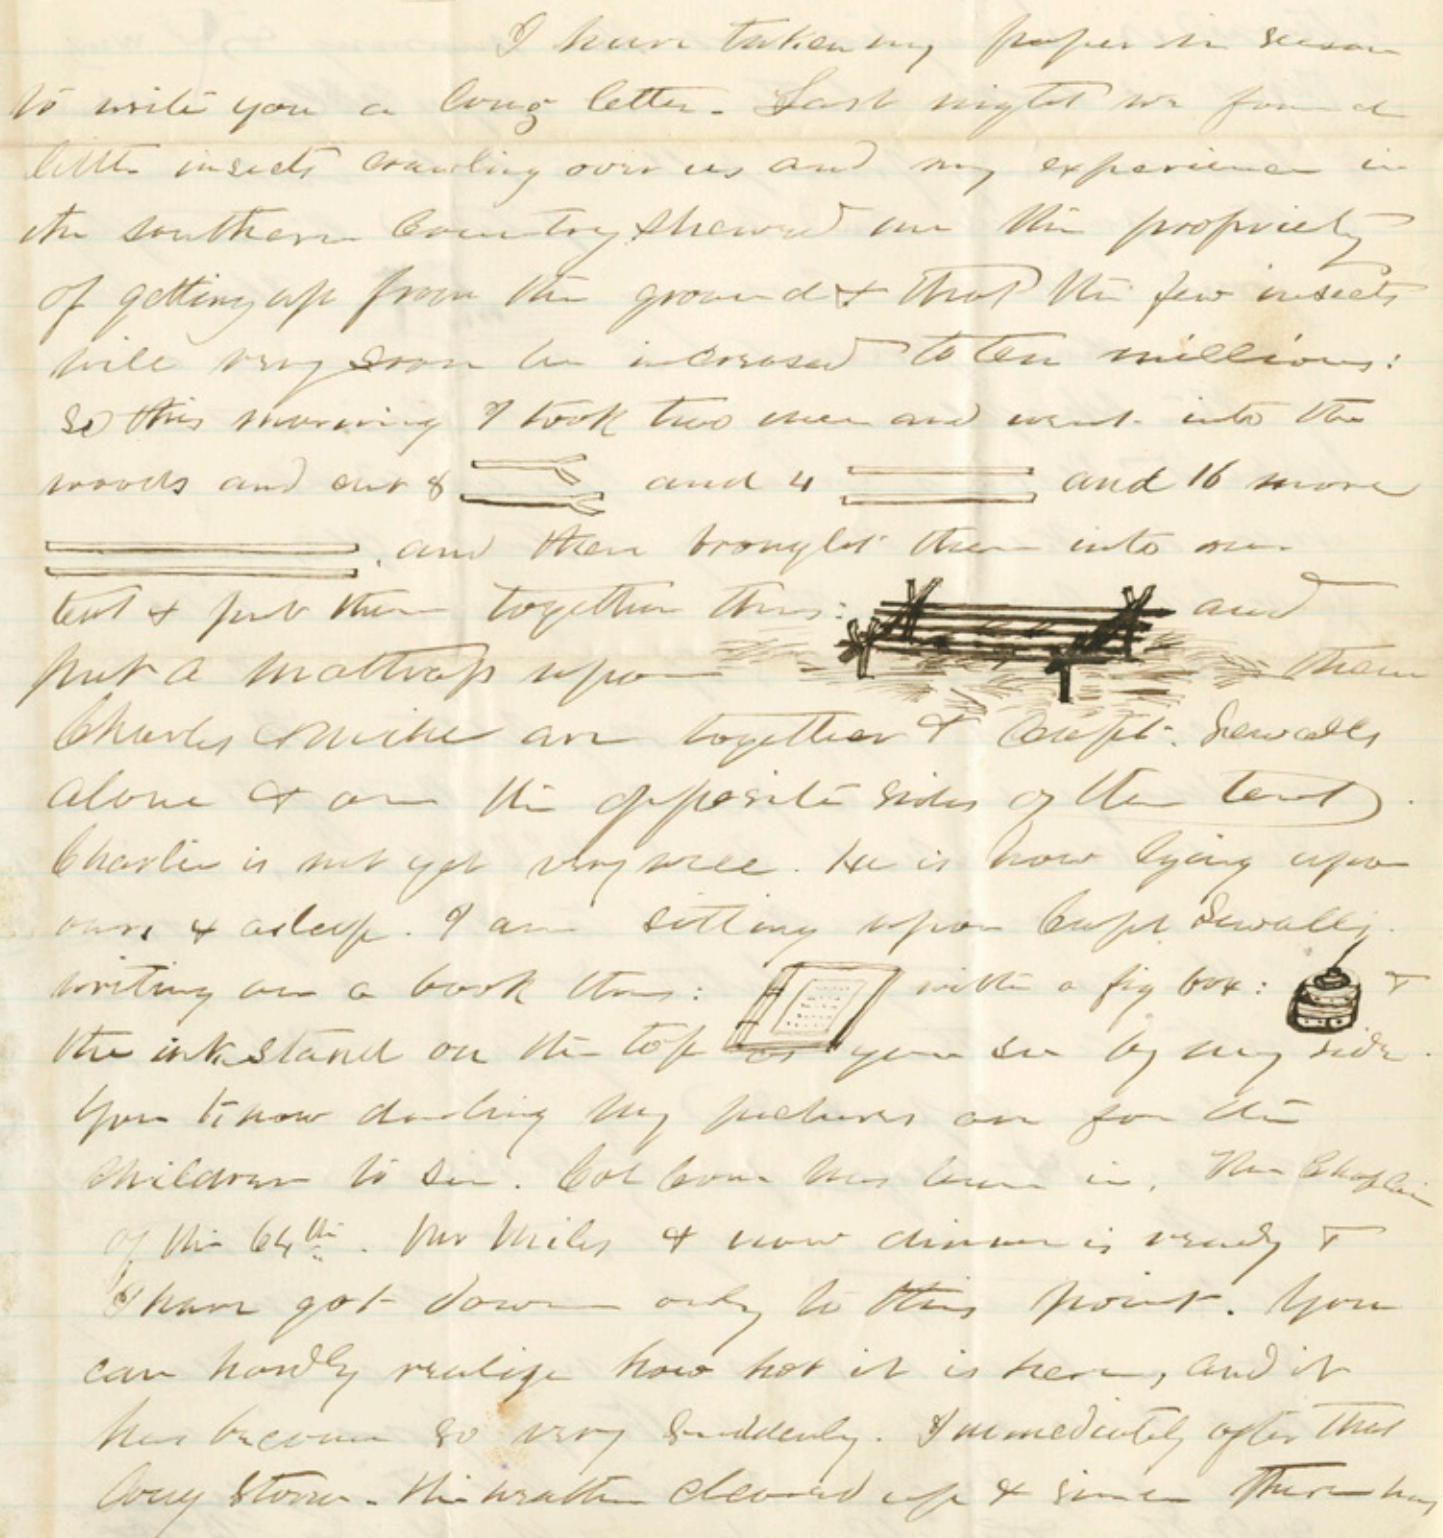 I have taken my paper in season
to write you a long letter. Last night we found
little insects crawling over us and my experience in
the southern Country shewed me the propriety
of getting up from the ground & that the few insects
will very soon be increased to ten millions:
So this morning I took two men and went into the
woods and cut 8 and 4 and 16 more
, and then brought them into our
tent & put them together thus: and
put a mattrass upon them
Charles & are together & Capt. Sewalls
alone & on the opposite sides of the tent.
Charlie is not yet very well. He is now lying upon
ours & asleep. I am sitting upon Capt Sewalls
writing on a book thus: with a fig box: &
the inkstand on the top as you see by my side.
You know darling my pictures are for the
children to see. Col has been in, The Chaplain
of the 64th. Mr Miles & now dinner is ready &
I have got down only to this point. You
can hardly realize how hot it is here, and it
has become so very suddenly. Immediately after that
long storm. the weather cleared up & since there has